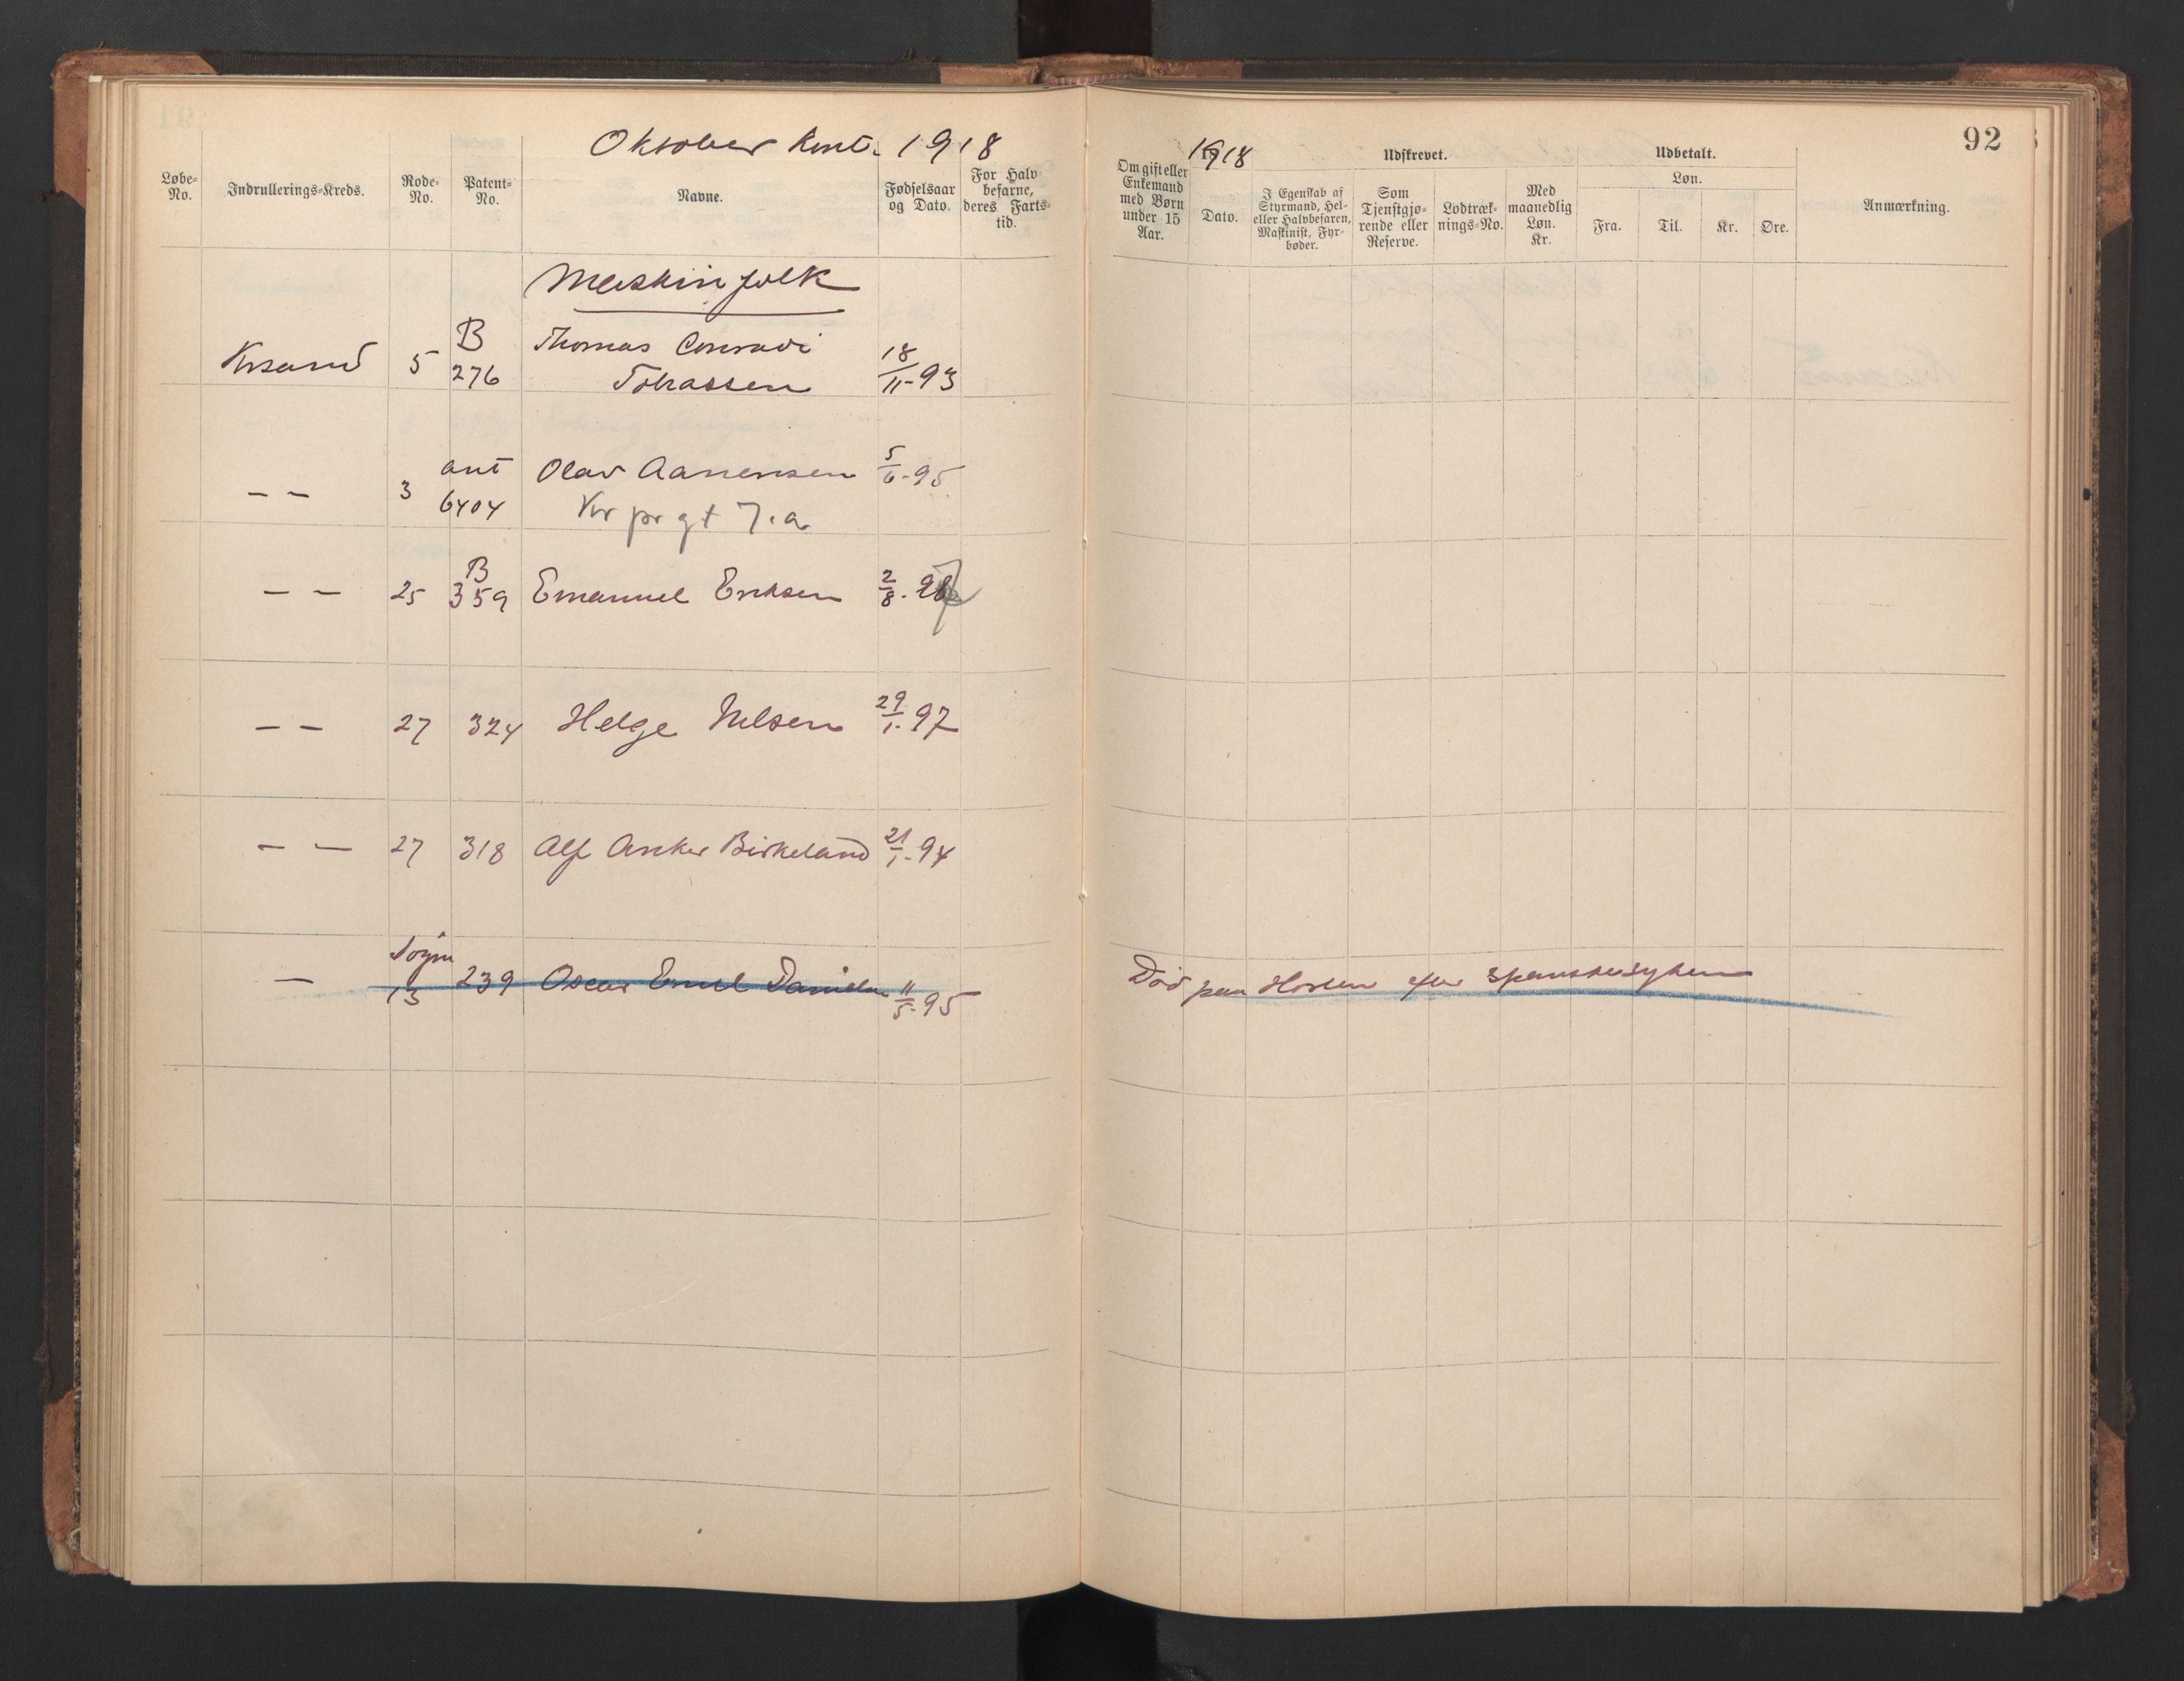 Oktober Kont. 1918
Løbe-No.
Indrullerings-Kreds.
Rode-No.
Patent-No.
Navne.
Fødselsaar og Dato.
For Halvbefarne, deres Fartstid.
Maskinfolk
Krsand 5 B 276 Thomas Conradi
Tobiassen 18/11-93
— — 3 ant 6404 Olav Aanensen 5/6-95
Kr pr gt 7.a.
— — 25 B 359 Emanuel Eriksen 2/8-98
— — 27 324 Helge Nilsen 29/1-97
— — 27 318 Alf Anker Birkeland 21/1-94
— Sogn 13 239 Oscar Emil Danielsen 11/5-95
92
1918
Om gift eller Enkemand med Børn under 15 Aar.
Dato.
Udskrevet.
I Egenskab af Styrmand, Hel- eller Halvbefaren, Maskinist, Fyrbøder.
Som Tjenstgjørende eller Reserve.
Lodtræknings-No.
Med maanedlig Løn. Kr.
Udbetalt.
Løn.
Fra.
Til.
Kr.
Øre.
Anmærkning.
Död paa Horten efter spanskesyken